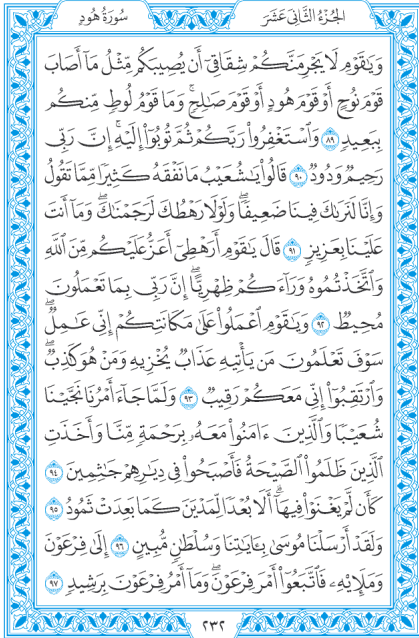 الجزء الثاني عشر
سورة هود
وَيَٰقَوْمِ لَا يَجْرِمَنَّكُمْ شِقَاقِىٓ أَن يُصِيبَكُم مِّثْلُ مَآ أَصَابَ
قَوْمَ نُوحٍ أَوْ قَوْمَ هُودٍ أَوْ قَوْمَ صَٰلِحٍۚ وَمَا قَوْمُ لُوطٍ مِّنكُم
بِبَعِيدٍ ٨٩ وَٱسْتَغْفِرُوا۟ رَبَّكُمْ ثُمَّ تُوبُوٓا۟ إِلَيْهِۚ إِنَّ رَبِّى
رَحِيمٌ وَدُودٌ ٩٠ قَالُوا۟ يَٰشُعَيْبُ مَا نَفْقَهُ كَثِيرًا مِّمَّا تَقُولُ
وَإِنَّا لَنَرَىٰكَ فِينَا ضَعِيفًاۖ وَلَوْلَا رَهْطُكَ لَرَجَمْنَٰكَۖ وَمَآ أَنتَ
عَلَيْنَا بِعَزِيزٍ ٩١ قَالَ يَٰقَوْمِ أَرَهْطِىٓ أَعَزُّ عَلَيْكُم مِّنَ ٱللَّهِ
وَٱتَّخَذْتُمُوهُ وَرَآءَكُمْ ظِهْرِيًّاۖ إِنَّ رَبِّى بِمَا تَعْمَلُونَ
مُحِيطٌ ٩٢ وَيَٰقَوْمِ ٱعْمَلُوا۟ عَلَىٰ مَكَانَتِكُمْ إِنِّى عَٰمِلٌۖ
سَوْفَ تَعْلَمُونَ مَن يَأْتِيهِ عَذَابٌ يُخْزِيهِ وَمَنْ هُوَ كَٰذِبٌۖ
وَٱرْتَقِبُوٓا۟ إِنِّى مَعَكُمْ رَقِيبٌ ٩٣ وَلَمَّا جَآءَ أَمْرُنَا نَجَّيْنَا
شُعَيْبًا وَٱلَّذِينَ ءَامَنُوا۟ مَعَهُۥ بِرَحْمَةٍ مِّنَّا وَأَخَذَتِ
ٱلَّذِينَ ظَلَمُوا۟ ٱلصَّيْحَةُ فَأَصْبَحُوا۟ فِى دِيَٰرِهِمْ جَٰثِمِينَ ٩٤
كَأَن لَّمْ يَغْنَوْا۟ فِيهَآۗ أَلَا بُعْدًا لِّمَدْيَنَ كَمَا بَعِدَتْ ثَمُودُ ٩٥
وَلَقَدْ أَرْسَلْنَا مُوسَىٰ بِـَٔايَٰتِنَا وَسُلْطَٰنٍ مُّبِينٍ ٩٦ إِلَىٰ فِرْعَوْنَ
وَمَلَإِي۟هِۦ فَٱتَّبَعُوٓا۟ أَمْرَ فِرْعَوْنَۖ وَمَآ أَمْرُ فِرْعَوْنَ بِرَشِيدٍ ٩٧
٢٣٢